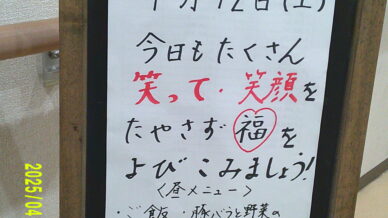 月12日(土)
今日もたくさん
笑って・笑顔を
たやさず福を
よびこみましょう!
〈昼メニュー〉
・ご飯 ・豚バラと野菜の
2025/04